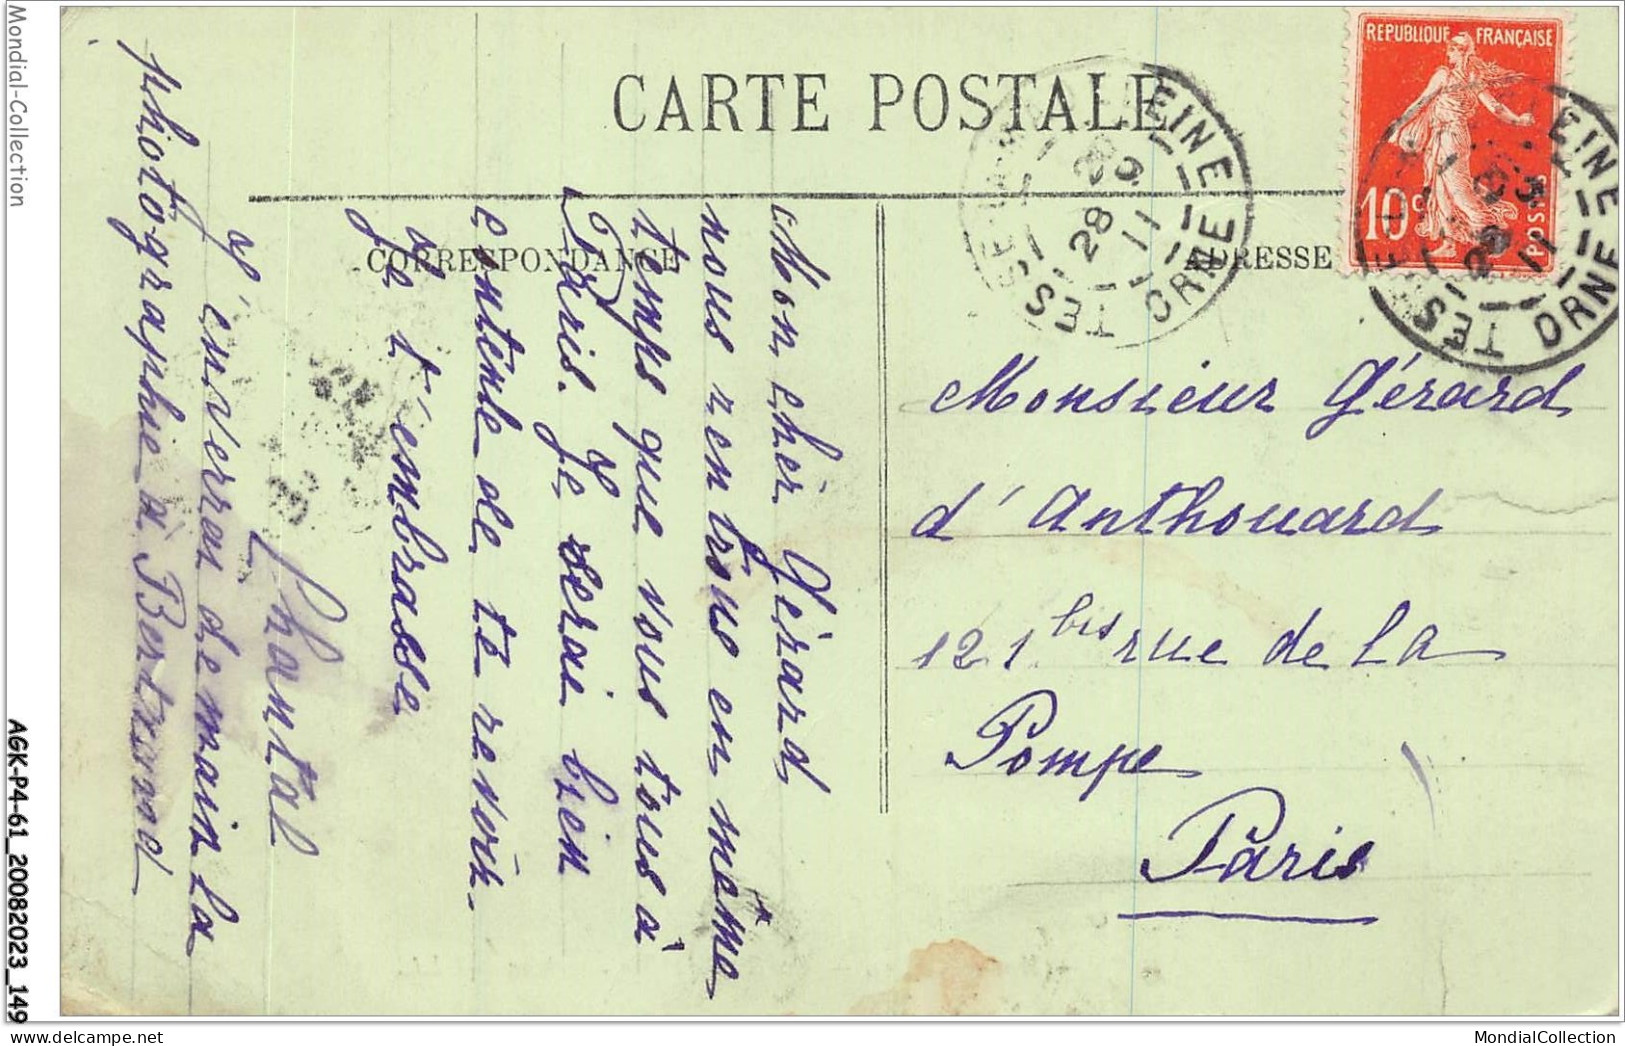 CARTE POSTALE
CORRESPONDANCE
ADRESSE
REPUBLIQUE FRANÇAISE
10c
POSTES
28
11
ORNE
28
11
ORNE
Mon cher Gérard
nous rentrons en même
temps que vous tous à
Paris. Je serai bien
contente de te revoir.
Je t'embrasse
Chantal
J'enverai demain la
phiotographie à Bertrand
Monsieur Gérard
d'Anthouard
121 bis rue de la
Pompe
Paris
Mondial-Collection
AGK-P4-61_20082023_149
MondialCollection